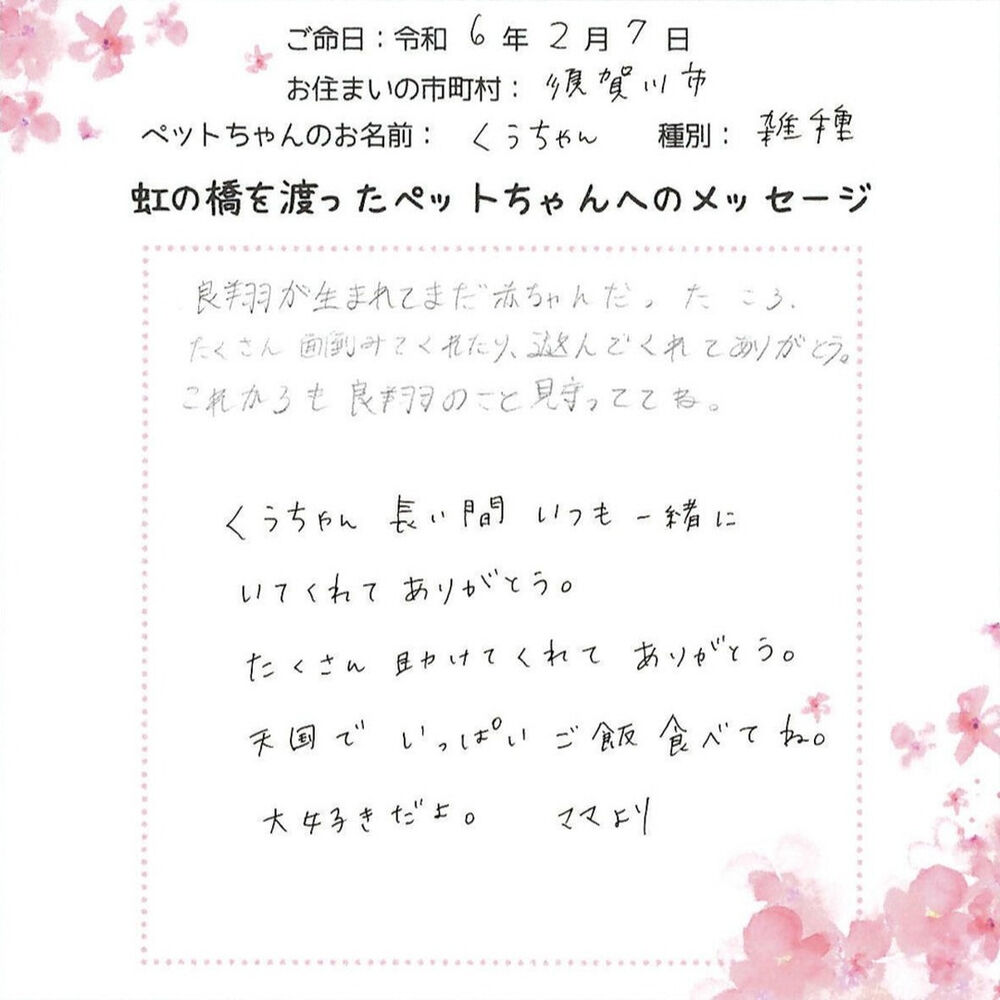 ご命日：令和 6 年 2 月 7 日
お住まいの市町村： 須賀川市
ペットちゃんのお名前： くうちゃん 種別： 雑種
虹の橋を渡ったペットちゃんへのメッセージ
良翔が生まれてまだ赤ちゃんだったころ、
たくさん面倒みてくれたり、遊んでくれてありがとう。
これからも良翔のこと見守っててね。
くうちゃん 長い間 いつも一緒に
いてくれて ありがとう。
たくさん 助けてくれて ありがとう。
天国で いっぱい ご飯 食べてね。
大好きだよ。 ママより